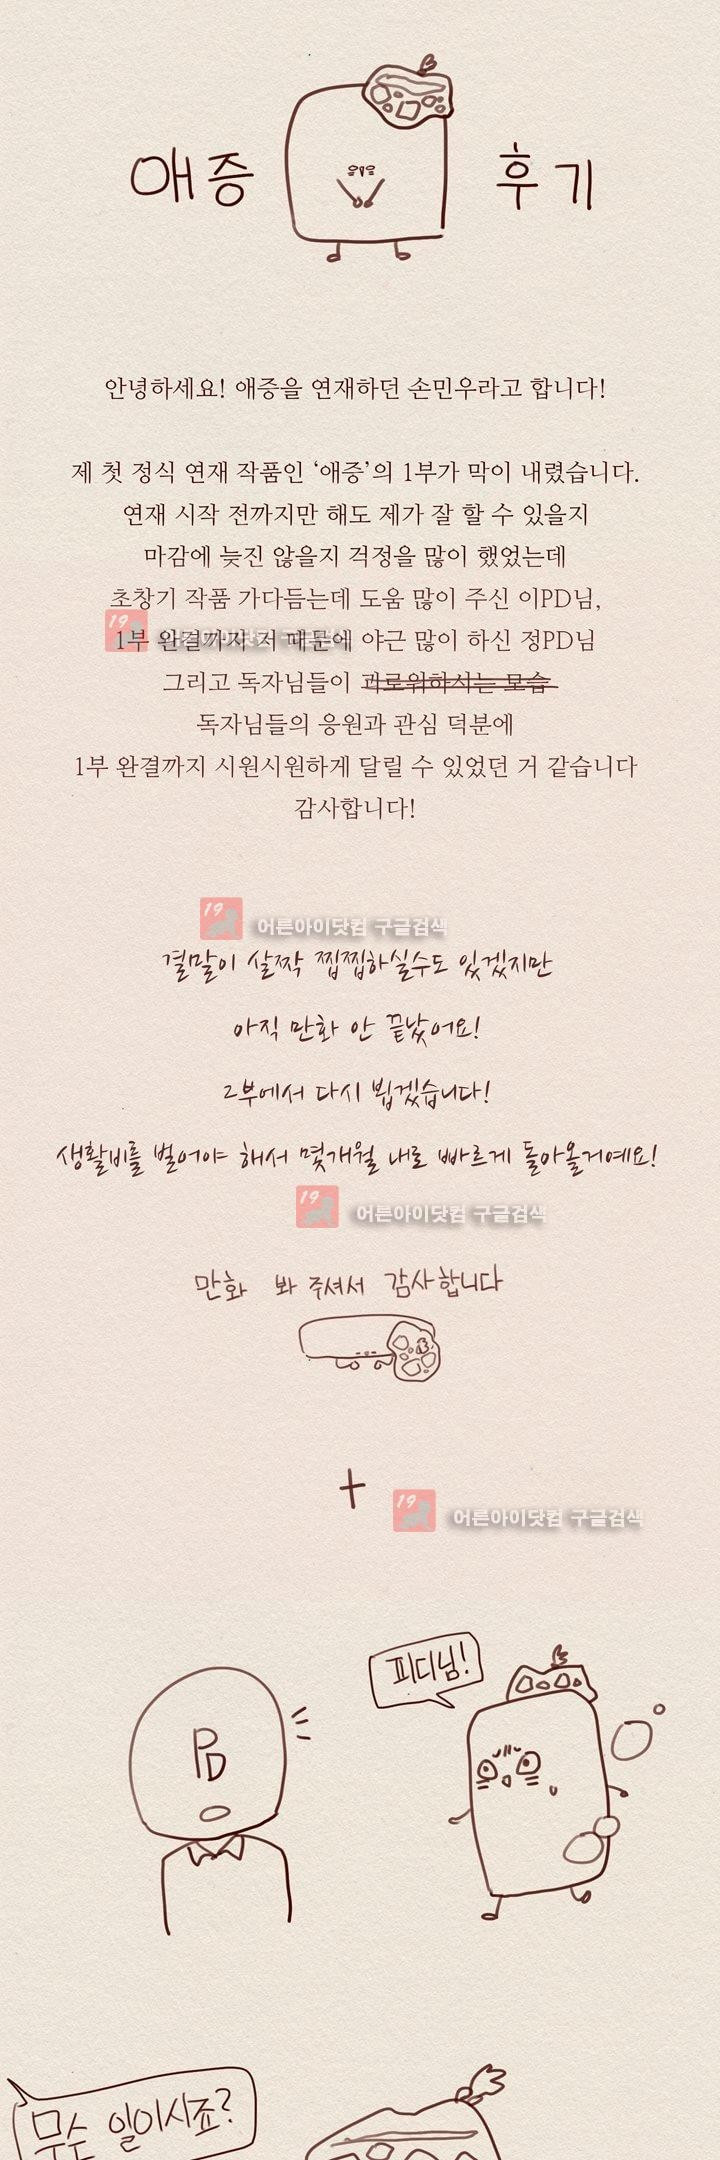 애증 후기
안녕하세요! 애증을 연재하던 손민우라고 합니다!
제 첫 정식 연재 작품인 ‘애증’의 1부가 막이 내렸습니다.
연재 시작 전까지만 해도 제가 잘 할 수 있을지
마감에 늦진 않을지 걱정을 많이 했었는데
초창기 작품 가다듬는데 도움 많이 주신 이PD님,
1부 완결까지 저 때문에 야근 많이 하신 정PD님
그리고 독자님들이 괴로워하시는 모습
독자님들의 응원과 관심 덕분에
1부 완결까지 시원시원하게 달릴 수 있었던 거 같습니다
감사합니다!
19 어른아이닷컴 구글검색
결말이 살짝 찝찝하실수도 있겠지만
아직 만화 안 끝났어요!
2부에서 다시 뵙겠습니다!
생활비를 벌어야 해서 몇개월 내로 빠르게 돌아올거예요!
19 어른아이닷컴 구글검색
만화 봐 주셔서 감사합니다
+
19 어른아이닷컴 구글검색
피디님!
PD
무슨 일이시죠?